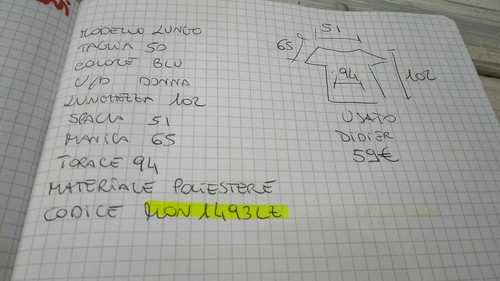 MODELLO LUNGO
TAGLIA 50
COLORE BLU
U/D DONNA
LUNGHEZZA 102
SPALLA 51
MANICA 65
TORACE 94
MATERIALE POLIESTERE
CODICE MON1493CZ
51
65
94
102
USATO
DIDIER
59€